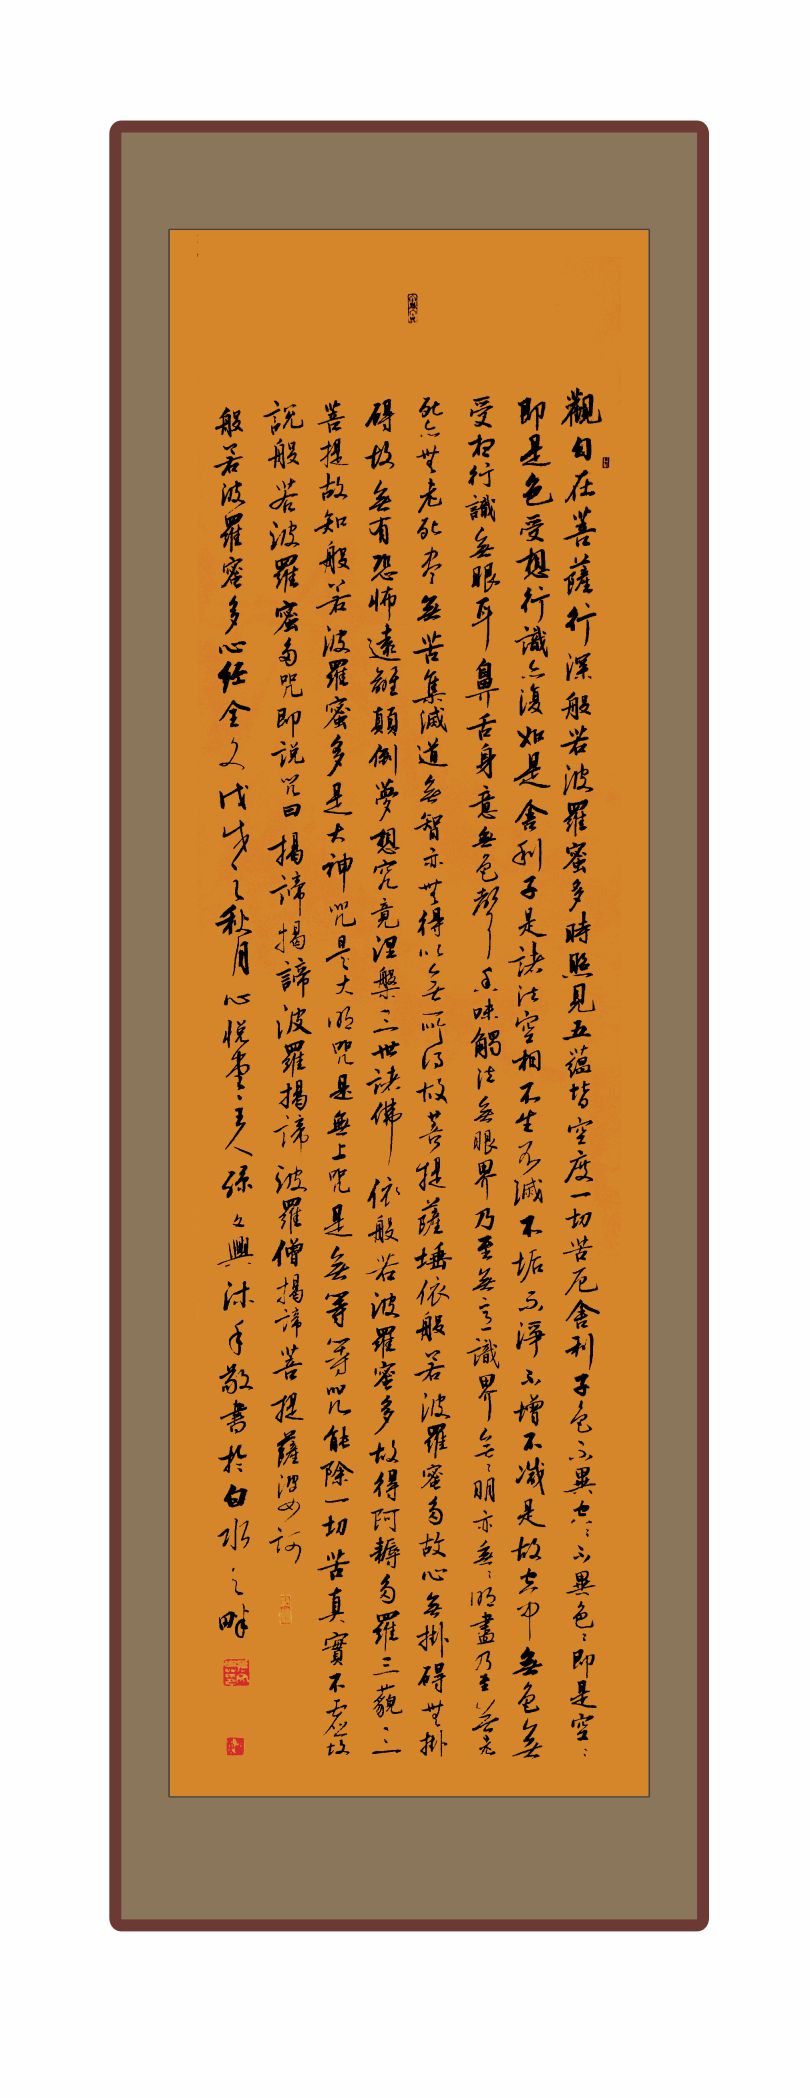 觀自在菩薩行深般若波羅蜜多時照見五蘊皆空度一切苦厄舍利子色不異空々不異色々即是空々
即是色受想行識亦復如是舍利子是諸法空相不生不滅不垢不淨不增不減是故空中無色無
受想行識無眼耳鼻舌身意無色聲香味觸法無眼界乃至無意識界無々明亦無々明盡乃至無老
死亦無老死盡無苦集滅道無智亦無得以無所得故菩提薩埵依般若波羅蜜多故心無掛碍無掛
碍故無有恐怖遠離顛倒夢想究竟涅槃三世諸佛依般若波羅蜜多故得阿耨多羅三藐三
菩提故知般若波羅蜜多是大神咒是大明咒是無上咒是無等等咒能除一切苦真實不虛故
說般若波羅蜜多咒即説咒曰揭諦揭諦波羅揭諦波羅僧揭諦菩提薩婆訶
般若波羅蜜多心經全文戊戌之秋月心悅齋主人孫々興沐手敬書於白水之畔